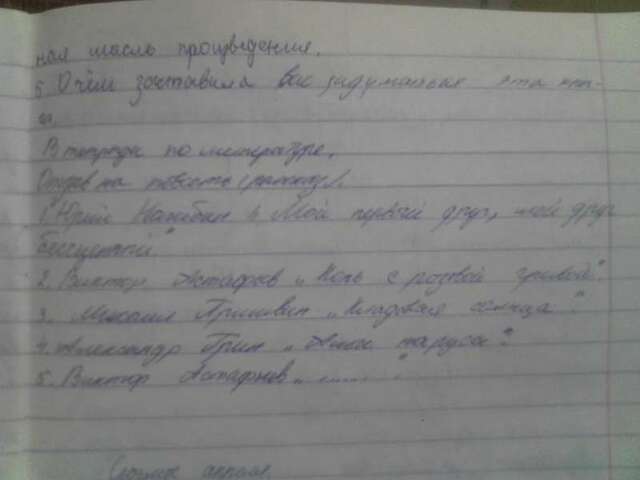 ная мысль произведения.
5 О чём заставила вас задуматься эта кни-
га.
В тетради по литературе.
Отзыв на повесть (рассказ).
1. Юрий Нагибин „Мой первый друг, мой друг
бесценный."
2. Виктор Астафьев „Конь с розовой гривой".
3. Михаил Пришвин „Кладовая солнца".
4. Александр Грин „Алые паруса".
5. Виктор Астафьев „......"